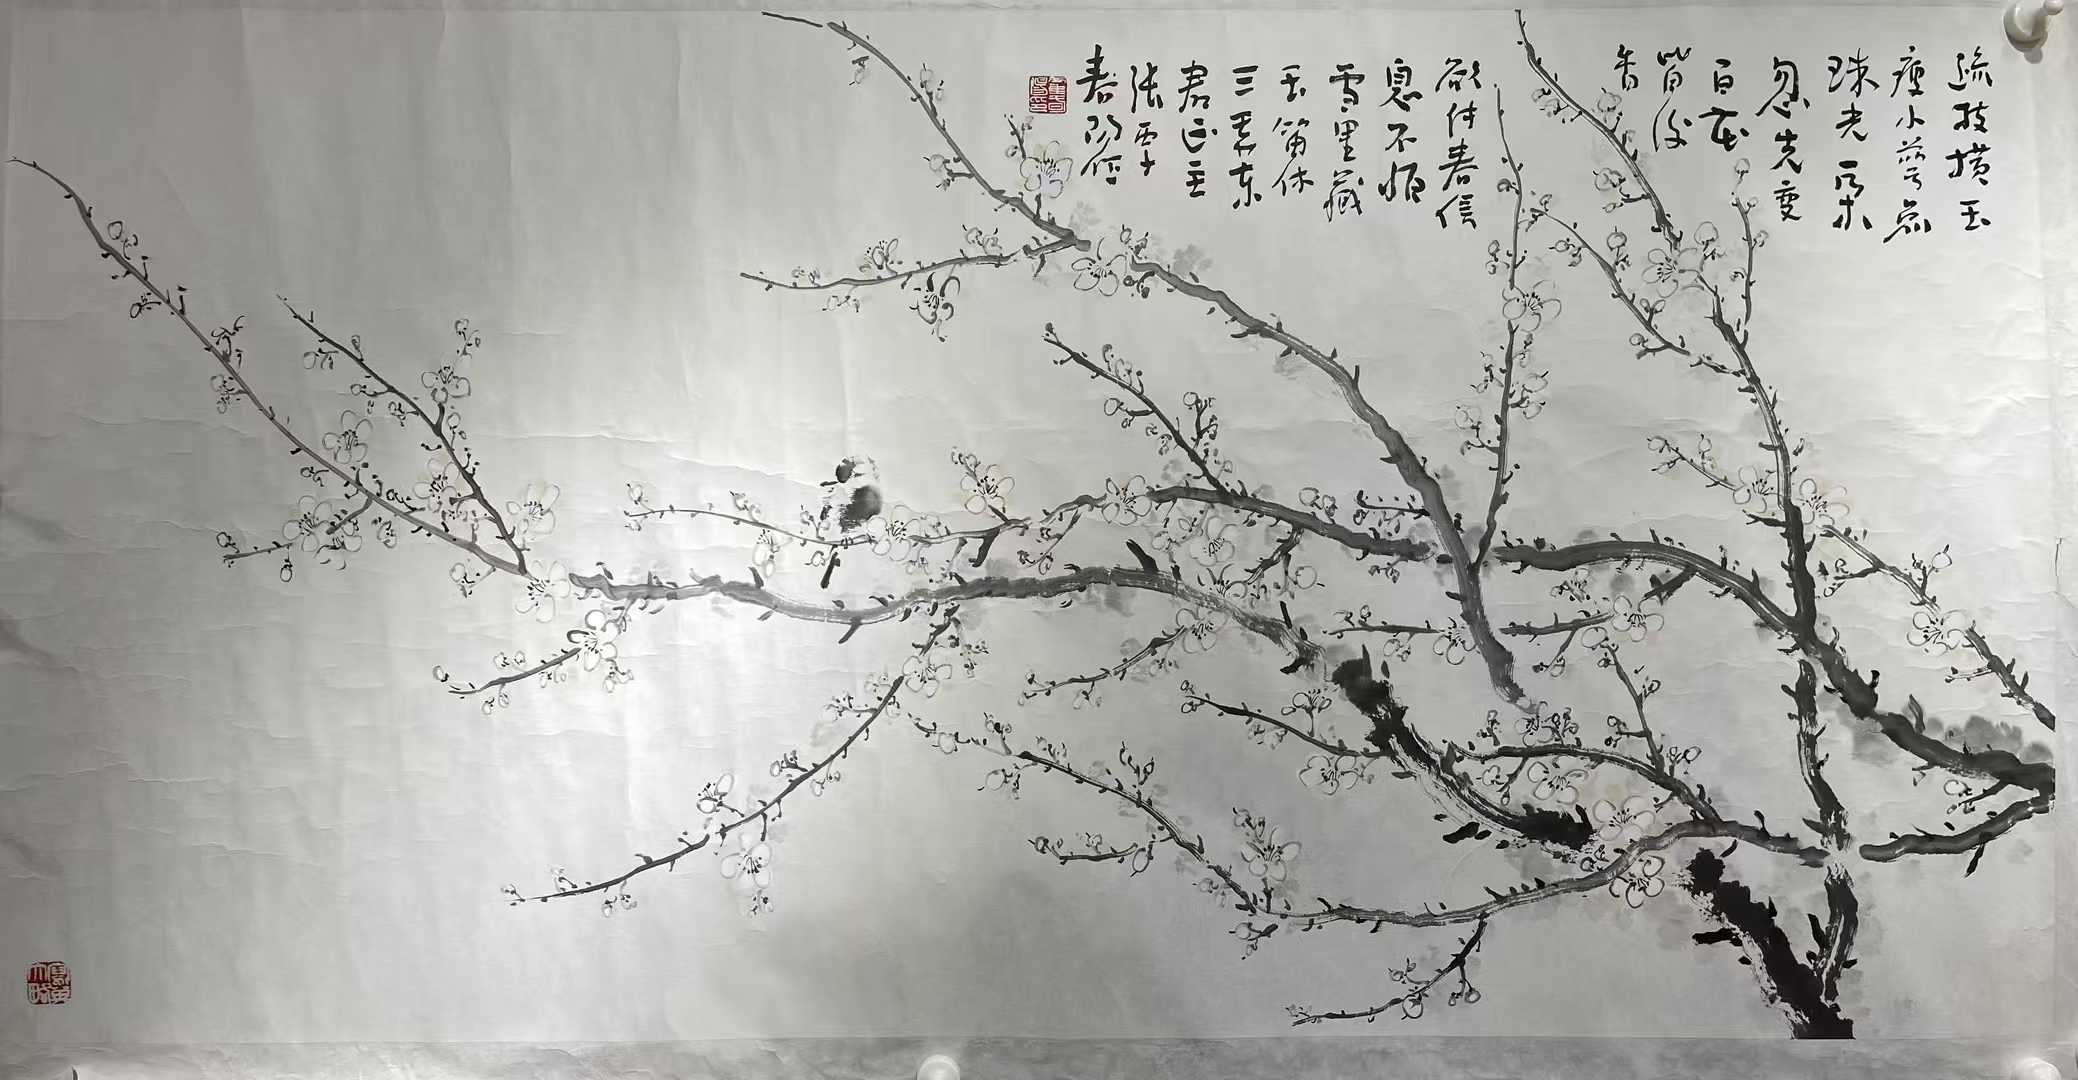 疏枝横玉
瘦小萼点
珠光一朵
忽先变
百花
皆後
香
欲传春信
息不怕
雪里藏
玉笛休
三弄东
君正主
张
春阳